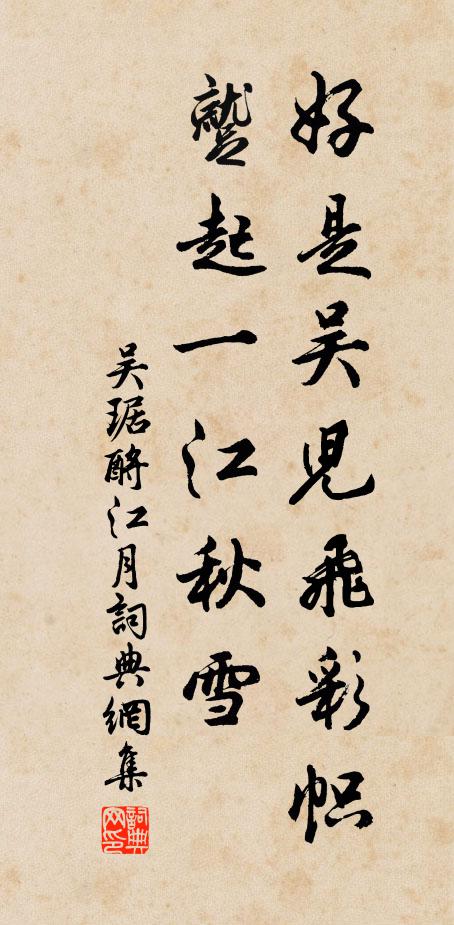 好是吴兒飛彩帜
蹵起一江秋雪
吴琚酹江月詞典網集
詞典网印